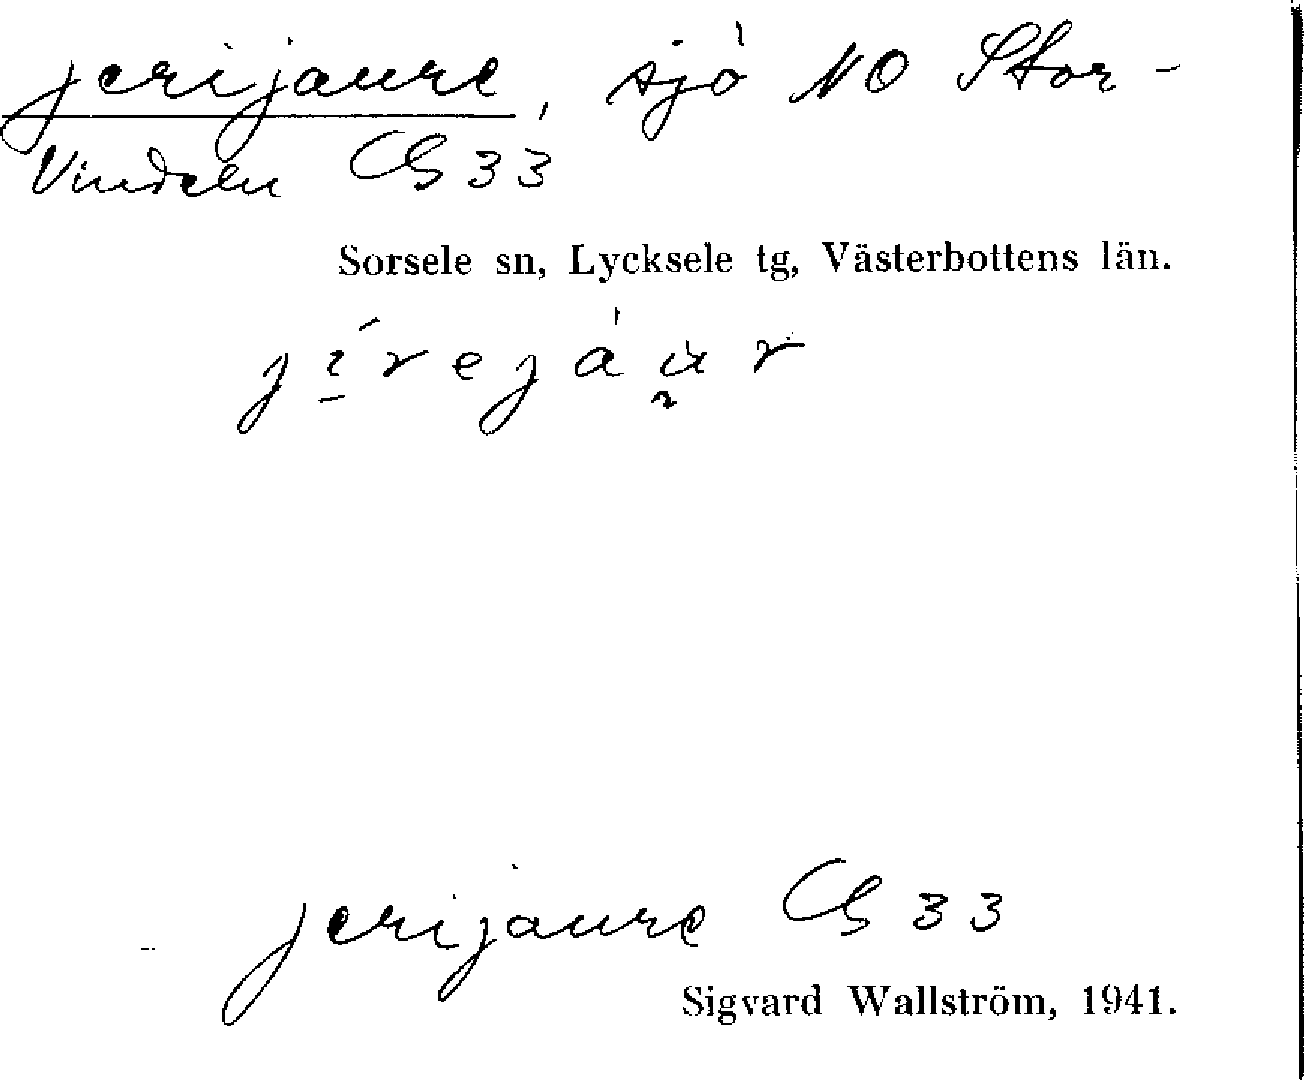 Jerijaure, sjö NO Stor-
Vindeln CG 33
Sorsele sn, Lycksele tg, Västerbottens län.
jí̱rejáu̯r
Jerijaure CG 33
Sigvard Wallström, 1941.